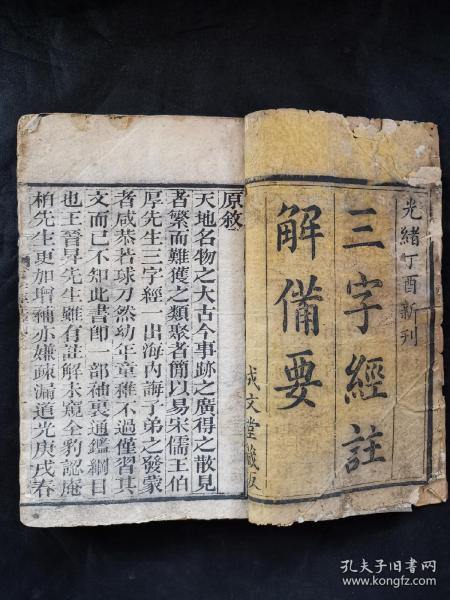 光緒丁酉新刊
三字經註
解備要
成文堂藏板
原敘
天地名物之大古今事跡之廣得之散見
者繁而難獲之類聚者簡以易宋儒王伯
厚先生三字經一出海內誨子弟之發蒙
者咸恭若球刀然幼年童稚不過僅習其
文而已不知此書即一部袖裏通鑑綱目
也王晉昇先生雖有註解未窺全豹認庵
栢先生更加增補亦嫌疎漏道光庚戌春
孔夫子旧书网
www.kongfz.com